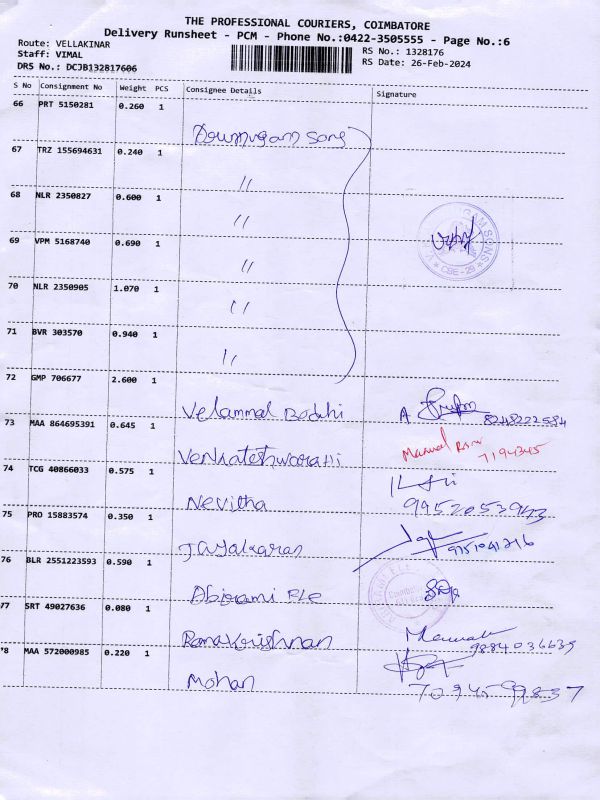 THE PROFESSIONAL COURIERS, COIMBATORE
Delivery Runsheet - PCM - Phone No.:0422-3505555 - Page No.:6
Route: VELLAKINAR
Staff: VIMAL
DRS No.: DCJB132817606
RS No.: 1328176
RS Date: 26-Feb-2024
S No Consignment No Weight PCS Consignee Details Signature
66 PRT 5150281 0.260 1
67 TRZ 155694631 0.240 1 〃
68 NLR 2350827 0.600 1 〃
69 VPM 5168740 0.690 1 〃
70 NLR 2350905 1.070 1 〃
71 BVR 303570 0.940 1 〃
72 GMP 706677 2.600 1 Velammal Bodhi 8248222584
73 MAA 864695391 0.645 1 Venkateshwara 7194345
74 TCG 40866033 0.575 1 Nevitha
75 PRO 15883574 0.350 1 Jayakaran
76 BLR 2551223593 0.590 1 Abirami ELE
77 SRT 49027636 0.080 1 Ramakrishnan 9884036635
78 MAA 572000985 0.220 1 Mohan
CBE-29